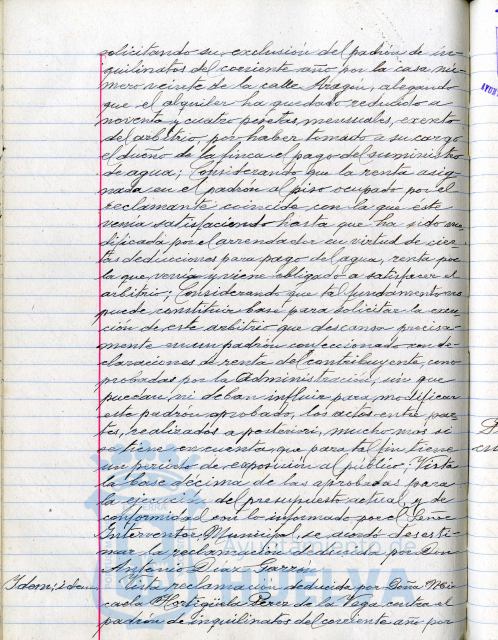 solicitando su exclusión del padrón de in-
quilinatos del corriente año por la casa nú-
mero veinte de la calle Aragón, alegando
que el alquiler ha quedado reducido a
noventa y cuatro pesetas mensuales, exento
del arbitrio, por haber tomado a su cargo
el dueño de la finca el pago del suministro
de agua; Considerando que la renta asig-
nada en el padrón al piso ocupado por el
reclamante coincide con la que éste
venía satisfaciendo hasta que ha sido mo-
dificada por el arrendador en virtud de cier-
tas deducciones para pago del agua, renta por
la que venía y viene obligado a satisfacer el
arbitrio; Considerando que tal fundamento no
puede constituir base para solicitar la exen-
ción de este arbitrio que descansa precisa-
mente en un padrón confeccionado con de-
claraciones de renta del contribuyente, com-
probadas por la Administración, sin que
puedan, ni deban influir para modificar
este padrón aprobado, los actos entre par-
tes, realizados a posteriori, mucho más si
se tiene en cuenta, que para tal fin tiene
un periodo de exposición al público; Vista
la base décima de las aprobadas para
la ejecución del presupuesto actual y de
conformidad con lo informado por el Señor
Interventor Municipal, se acordó desesti-
mar la reclamación deducida por Don
Antonio Díaz Garzón.
Idem; idem. Vista reclamación deducida por Doña
casta Hortigüela Pérez de la Vega contra el
padrón de inquilinatos del corriente año por
Ayuntamiento de
HUELVA